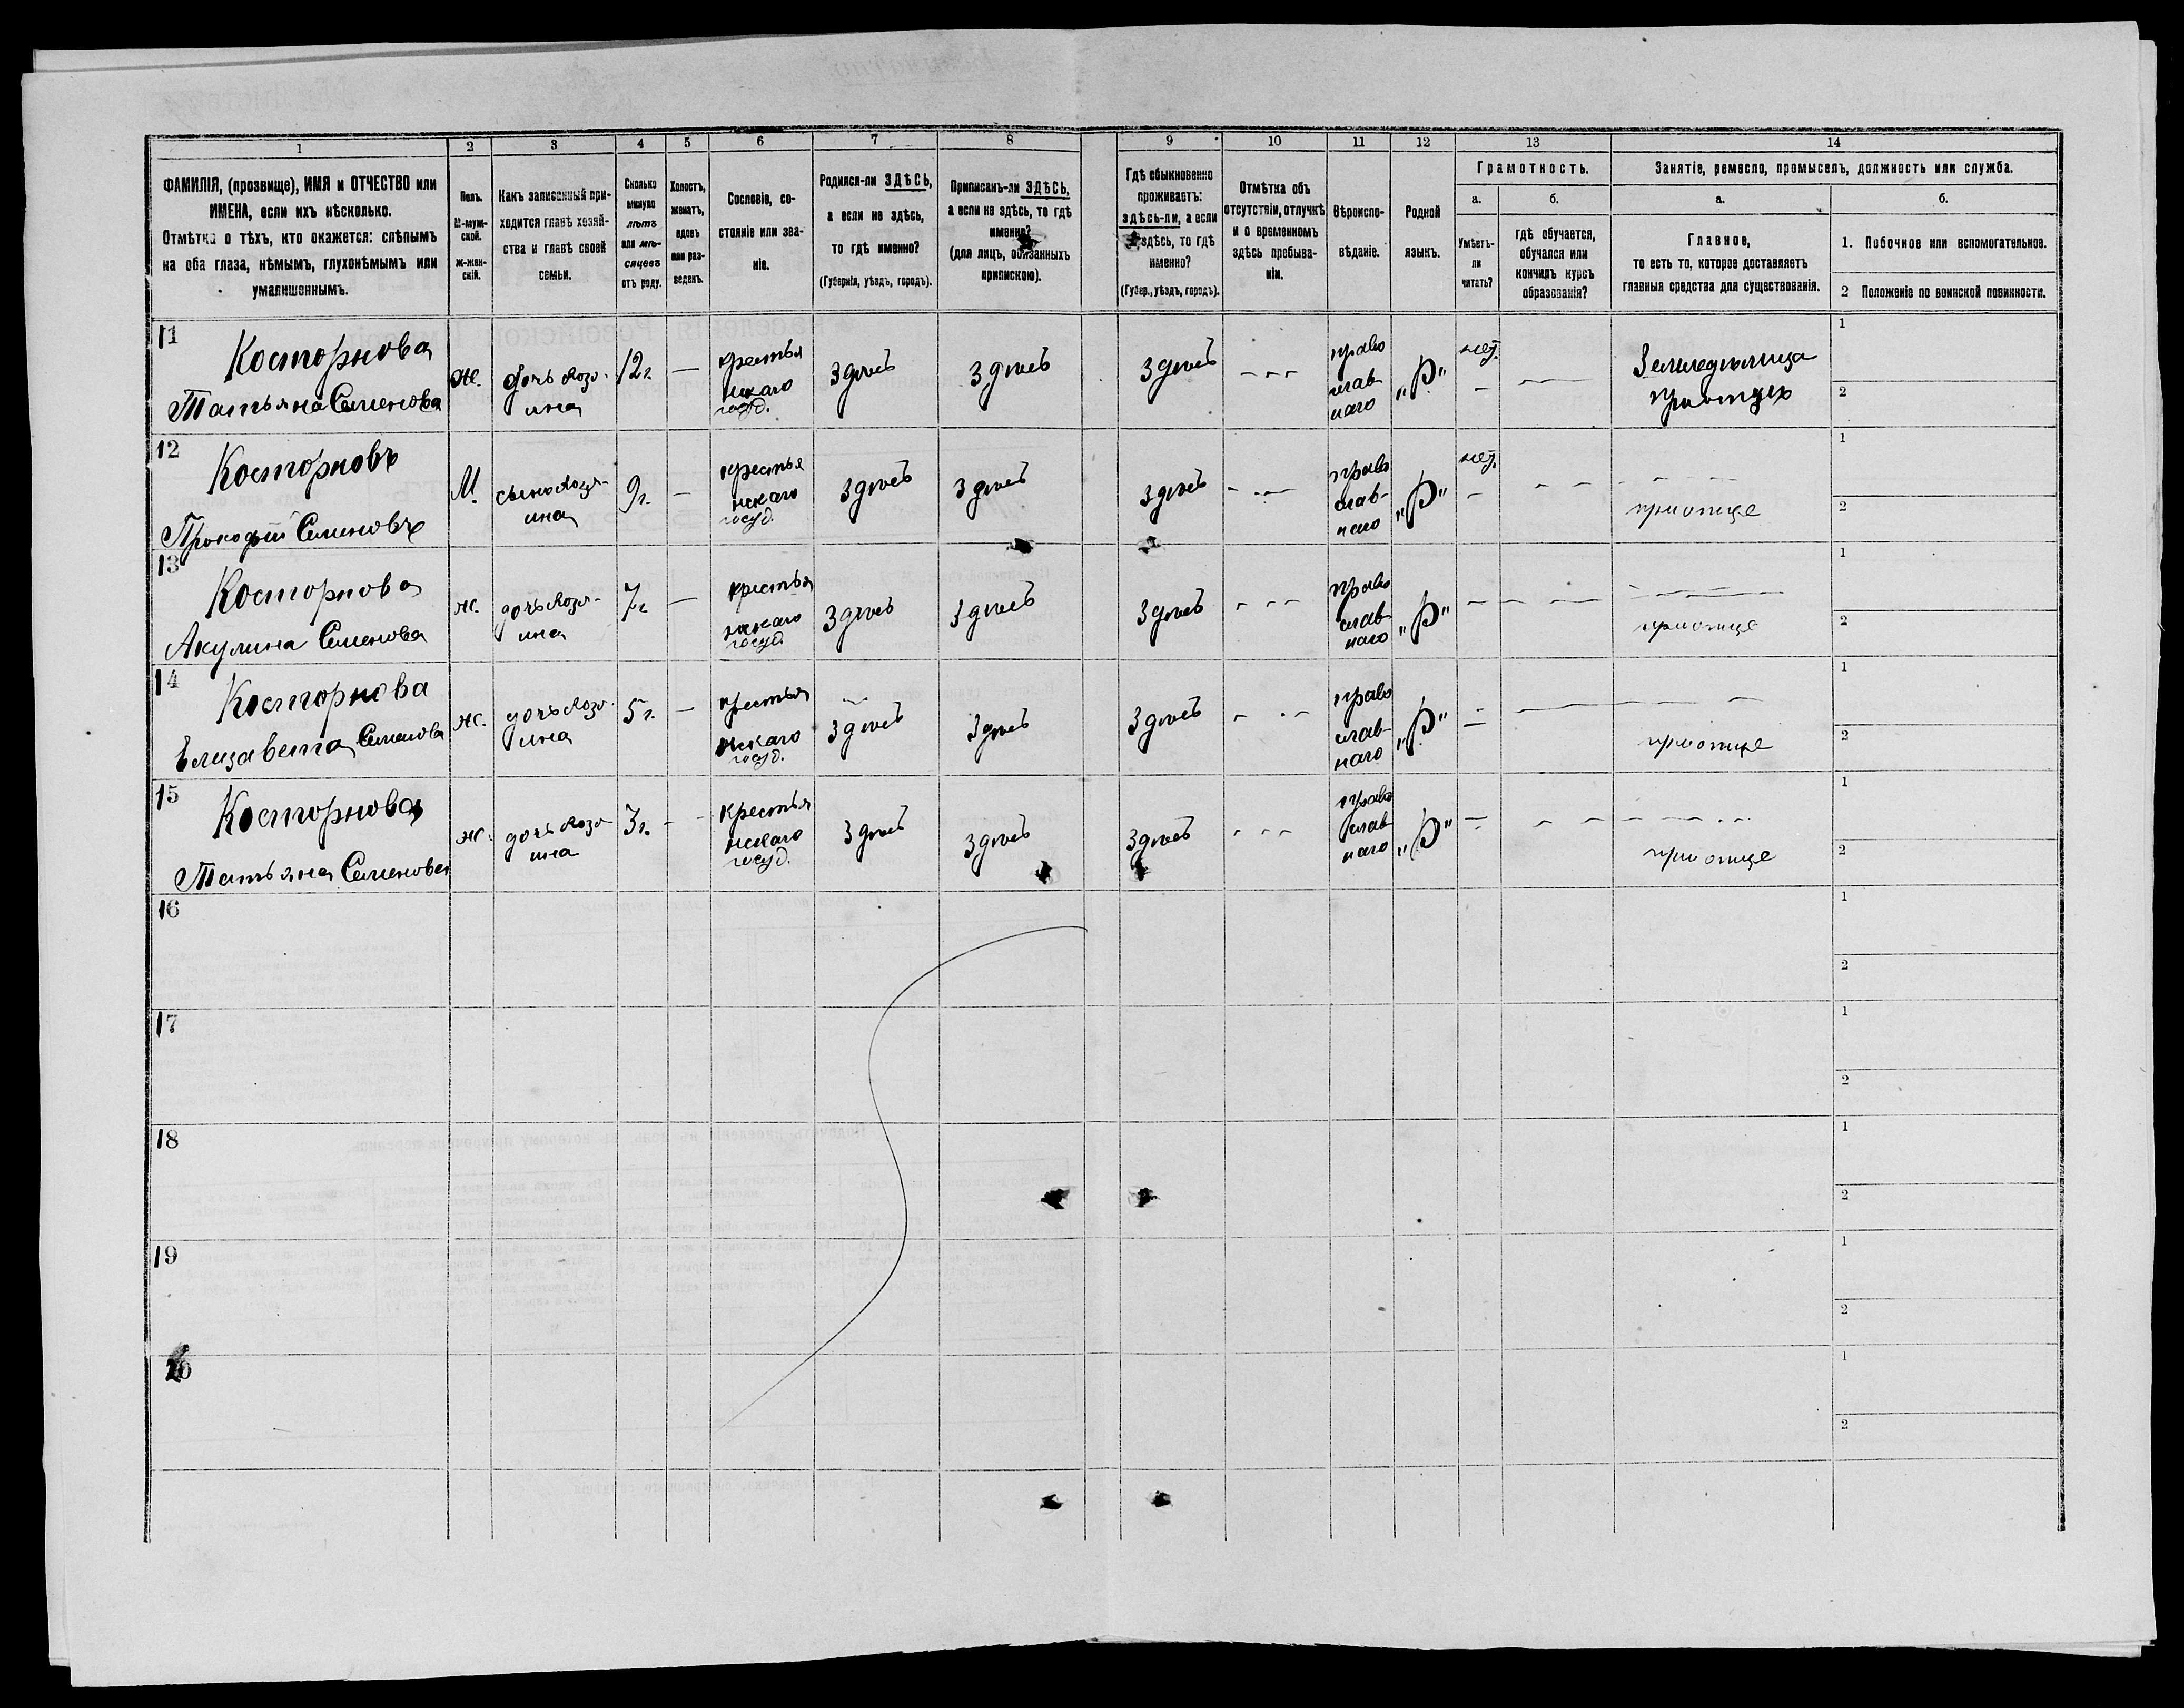 1 2 3 4 5 6 7 8 9 10 11 12 13 14
ФАМИЛІЯ, (прозвище), ИМЯ и ОТЧЕСТВО или
ИМЕНА, если ихъ нѣсколько.
Отмѣтка о тѣхъ, кто окажется: слѣпымъ
на оба глаза, нѣмымъ, глухонѣмымъ или
умалишоннымъ.
Полъ.
М-муж-
ской.
ж-жен-
скій.
Какъ записанный при-
ходится главѣ хозяй-
ства и главѣ своей
семьи.
Сколько
минуло
лѣтъ
или мѣ-
сяцевъ
отъ роду.
Холостъ,
женатъ,
вдовъ
или раз-
веденъ.
Сословіе, со-
стояніе или зва-
ніе.
Родился-ли ЗДѢСЬ,
а если не здѣсь,
то гдѣ именно?
(Губернія, уѣздъ, городъ).
Приписанъ-ли ЗДѢСЬ,
а если не здѣсь, то гдѣ
именно?
(для лицъ, обязанныхъ
припискою).
Гдѣ обыкновенно
проживаетъ:
здѣсь-ли, а если
не здѣсь, то гдѣ
именно?
(Губер., уѣздъ, городъ).
Отмѣтка объ
отсутствіи, отлучкѣ
и о временномъ
здѣсь пребыва-
ніи.
Вѣроиспо-
вѣданіе.
Родной
языкъ.
Грамотность.
а.
Умѣетъ-
ли
читать?
б.
гдѣ обучается,
обучался или
кончилъ курсъ
образованія?
Занятіе, ремесло, промыселъ, должность или служба.
а.
Главное,
то есть то, которое доставляетъ
главныя средства для существованія.
б.
1. Побочное или вспомогательное.
2 Положеніе по воинской повинности.
11
Косторнова
Татьяна Семенова
ж.
дочь хозя-
ина
12 г.
—
крестья
нскаго
госуд.
здѣсь
здѣсь
здѣсь
- - -
право
слав-
наго
„Р"
нѣт.
—
—
Земледѣлица
при отцѣ
1
2
12
Косторновъ
Прокофій Семеновъ
М.
сынъ хозя-
ина
9 г.
—
крестья
нскаго
госуд.
здѣсь
здѣсь
здѣсь
- - -
право
слав-
наго
„Р"
нѣт.
—
- -
при отцѣ
1
2
13
Косторнова
Акулина Семенова
ж.
дочь хозя-
ина
7 г.
—
крестья
нскаго
госуд.
здѣсь
здѣсь
здѣсь
- - -
право
слав-
наго
„Р"
—
при отцѣ
1
2
14
Косторнова
Елизавета Семенова
ж.
дочь хозя-
ина
5 г.
—
крестья
нскаго
госуд.
здѣсь
здѣсь
здѣсь
- - -
право
слав-
наго
„Р"
—
при отцѣ
1
2
15
Косторнова
Татьяна Семенова
ж.
дочь хозя-
ина
3 г.
- -
крестья
нскаго
госуд.
здѣсь
здѣсь
здѣсь
- - -
право
слав-
наго
„Р"
—
при отцѣ
1
2
16
1
2
17
1
2
18
1
2
19
1
2
20
1
2